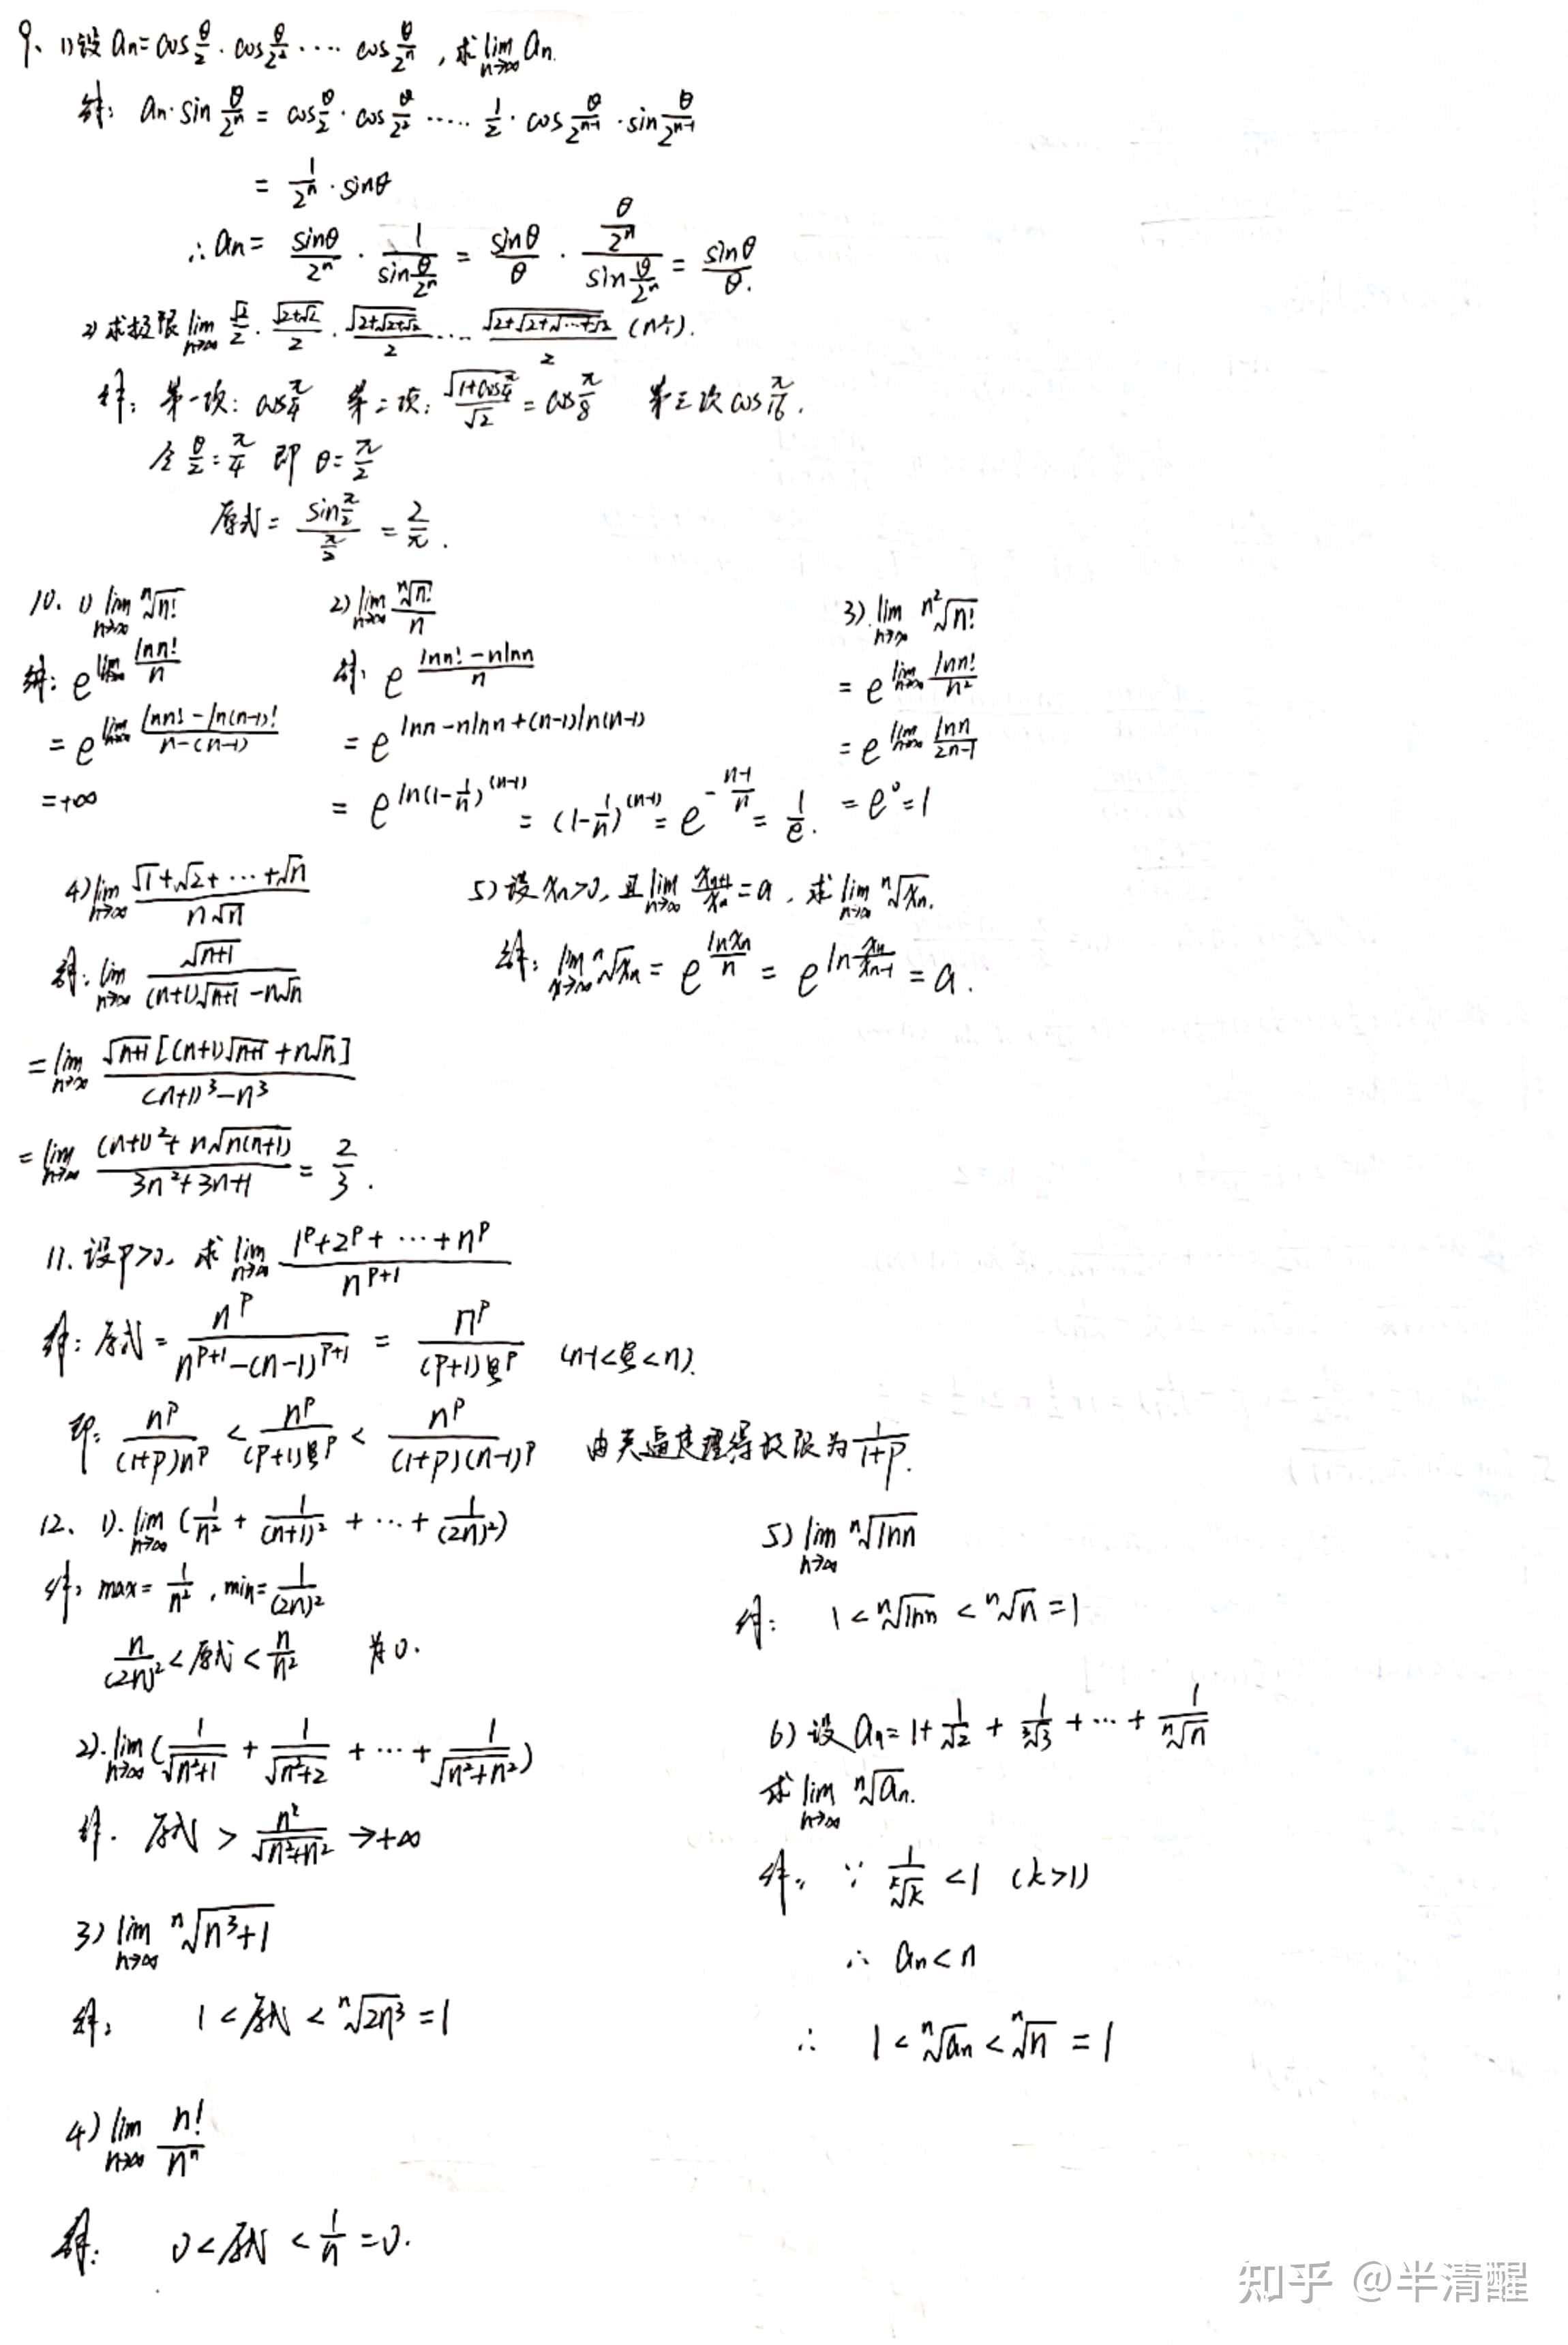 9、1)设 an=cos θ/2 · cos θ/2² ···· cos θ/2ⁿ , 求 lim n→∞ an.
解: an·sin θ/2ⁿ = cos θ/2 · cos θ/2² ····· 1/2 · cos θ/2ⁿ⁻¹ · sin θ/2ⁿ⁻¹
= 1/2ⁿ · sinθ
∴ an = sinθ/2ⁿ · 1/(sin θ/2ⁿ) = sinθ/θ · (θ/2ⁿ)/(sin θ/2ⁿ) = sinθ/θ.
2) 求极限 lim n→∞ √2/2 · √(2+√2)/2 · √(2+√(2+√2))/2 ···· √(2+√(2+√(···+√2)))/2 (n个).
解: 第一项: cos π/4 第二项: √(1+cos π/4)/√2 = cos π/8 第三次 cos π/16.
令 θ/2 = π/4 即 θ = π/2
原式 = (sin π/2)/(π/2) = 2/π.
10. 1) lim n→∞ ⁿ√n!
解: e^(lim n→∞ lnn!/n)
= e^(lim n→∞ (lnn! - ln(n-1)!)/(n-(n-1)))
= +∞
2) lim n→∞ ⁿ√n!/n
解: e^((lnn! - nlnn)/n)
= e^(lnn - nlnn + (n-1)ln(n-1))
= e^(ln(1-1/n)^(n-1)) = (1-1/n)^(n-1) = e^(-(n-1)/n) = 1/e.
3). lim n→∞ ^(n²)√n!
= e^(lim n→∞ lnn!/n²)
= e^(lim n→∞ lnn/(2n-1))
= e⁰ = 1
4) lim n→∞ (√1+√2+···+√n)/(n√n)
解: lim n→∞ √(n+1)/((n+1)√(n+1) - n√n)
= lim n→∞ √(n+1)[(n+1)√(n+1) + n√n]/((n+1)³-n³)
= lim n→∞ ((n+1)² + n√(n(n+1)))/(3n²+3n+1) = 2/3.
5) 设 xn>0, 且 lim n→∞ xn+1/xn = a , 求 lim n→∞ ⁿ√xn.
解: lim n→∞ ⁿ√xn = e^(lnxn/n) = e^(ln xn/xn-1) = a.
11. 设 p>0, 求 lim n→∞ (1ᵖ+2ᵖ+···+nᵖ)/n^(p+1)
解: 原式 = nᵖ/(n^(p+1)-(n-1)^(p+1)) = nᵖ/((p+1)ξᵖ) (n-1<ξ<n).
即: nᵖ/((1+p)nᵖ) < nᵖ/((p+1)ξᵖ) < nᵖ/((1+p)(n-1)ᵖ) 由夹逼定理得极限为 1/(1+p).
12、1). lim n→∞ (1/n² + 1/(n+1)² + ··· + 1/(2n)²)
解: max = 1/n² , min = 1/(2n)²
n/(2n)² < 原式 < n/n² 为0.
2). lim n→∞ (1/√(n²+1) + 1/√(n²+2) + ··· + 1/√(n²+n²))
解. 原式 > n²/√(n²+n²) → +∞
3) lim n→∞ ⁿ√(n³+1)
解: 1 < 原式 < ⁿ√(2n³) = 1
4) lim n→∞ n!/nⁿ
解: 0 < 原式 < 1/n = 0.
5) lim n→∞ ⁿ√lnn
解: 1 < ⁿ√lnn < ⁿ√n = 1
6) 设 an = 1 + 1/√2 + 1/³√3 + ··· + 1/ⁿ√n
求 lim n→∞ ⁿ√an.
解: ∵ 1/ᵏ√k < 1 (k>1)
∴ an < n
∴ 1 < ⁿ√an < ⁿ√n = 1
知乎 @半清醒